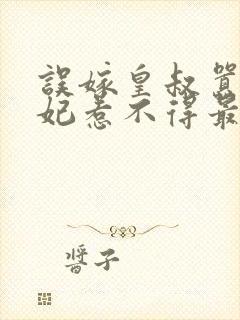 誤嫁皇叔
妃惹不得最
醬子